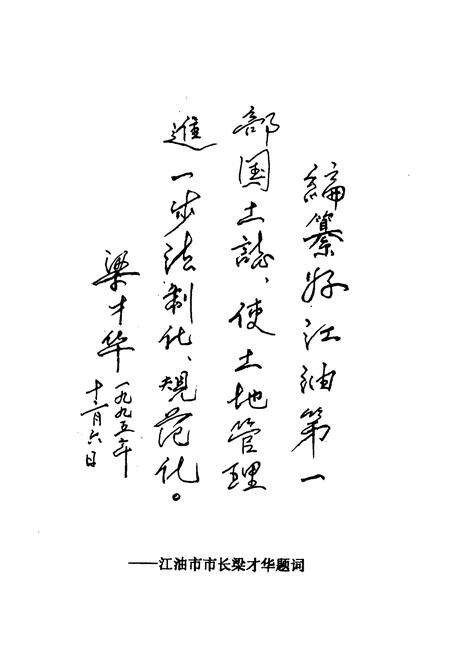 编纂好江油第一
部国土誌、使土地管理
進一步法制化、规范化。
梁才华
一九九五年
十二月六日
——江油市市长梁才华题词